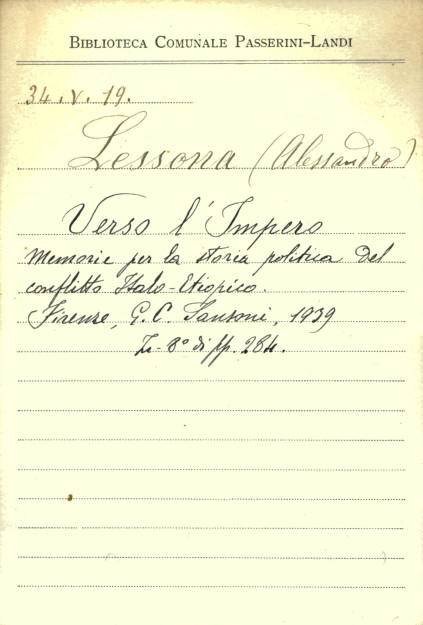 BIBLIOTECA COMUNALE PASSERINI-LANDI
34.V.19.
Lessona (Alessandro)
Verso l'Impero
Memorie per la storia politica del
conflitto Italo-Etiopico.
Firenze, G. C. Sansoni, 1939
In-8° di pp. 284.